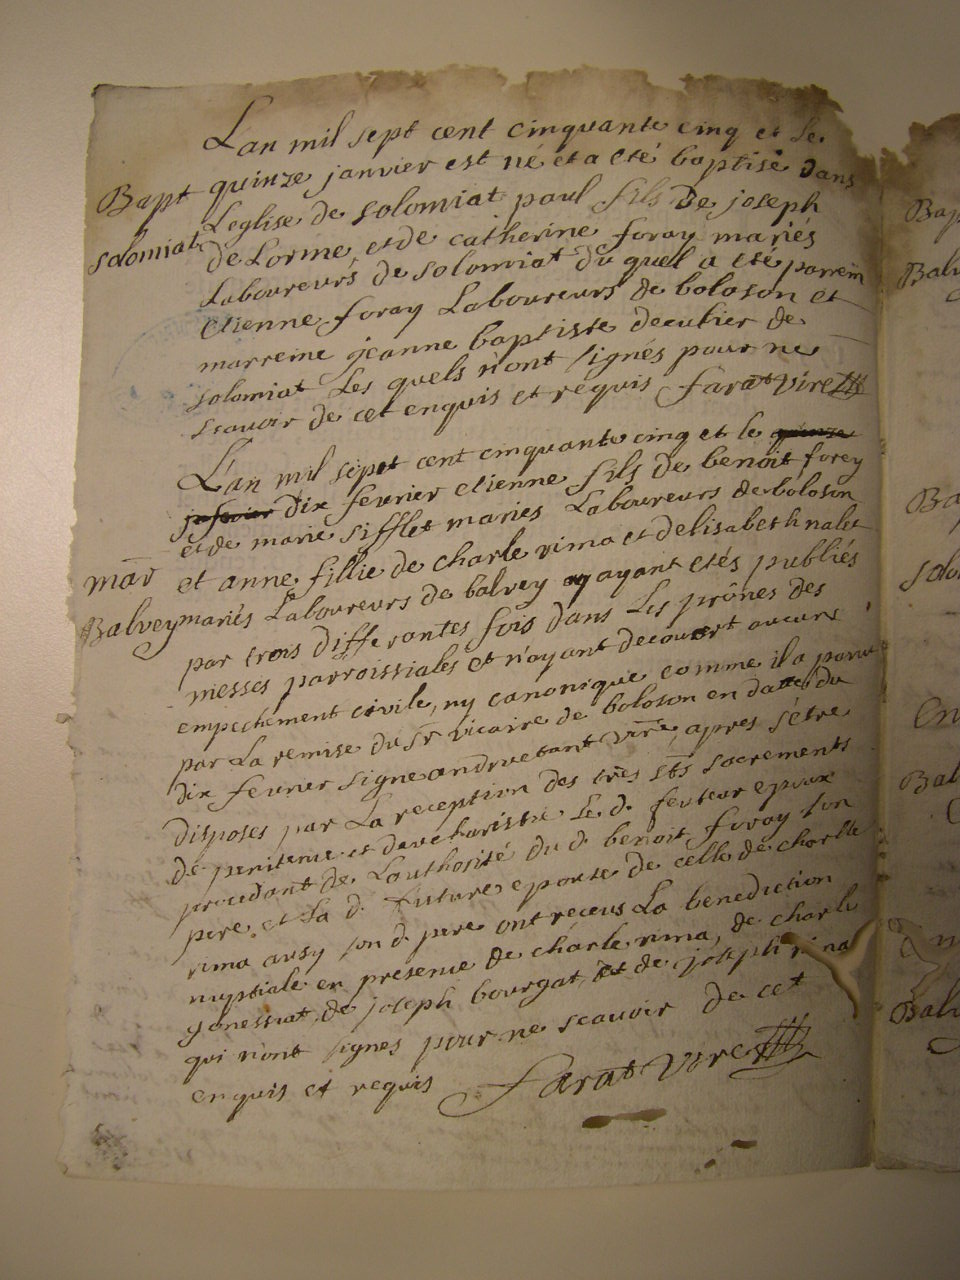 L'an mil sept cent cinquante cinq et le
Bapt quinze janvier est né et a eté baptisé dans
Solomiat L'eglise de solomiat paul fils De joseph
de Lorme, et de catherine foray mariés
Laboureurs de solomiat du quel a eté parrein
etienne foray Laboureurs de boloson et
marreine jeanne baptiste decuhier de
solomiat Les quels n'ont signés pour ne
scavoir de cet enquis et requis farat vire
L'an mil sept cent cinquante cinq et le quinze
janvier dix fevrier etienne fils de benoit forey
et de marie sifflet mariés Laboureurs de boloson
mar et anne fillie de charle rima et delisabeth nalet
Balvey mariés Laboureurs de balvey ayant etés publiés
par trois differantes fois dans Les prônes des
messes parroissiales et n'ayant decouvert aucune
empechement civile, ny canonique comme il a parut
par La remise du sr vicaire de boloson en datte du
dix fevrier signe andruetant vire, apres s'etre
disposes par La reception des tres sts sacrements
de penitence et deucharistie Le d. feuteur epoux
procedant de Lauthosité du d. benoit foray son
pere, et La d. future epouse de celle de charle
rima ausy son d. pere ont receus La benediction
nuptiale en presence de charle rima, de charle
gonessiat, de joseph bourgat, et de joseph rima
qui n'ont signes pour ne scauoir de cet
enquis et requis farat vire
Bap
Balv
Ba
Solo
En
Bal
Balv